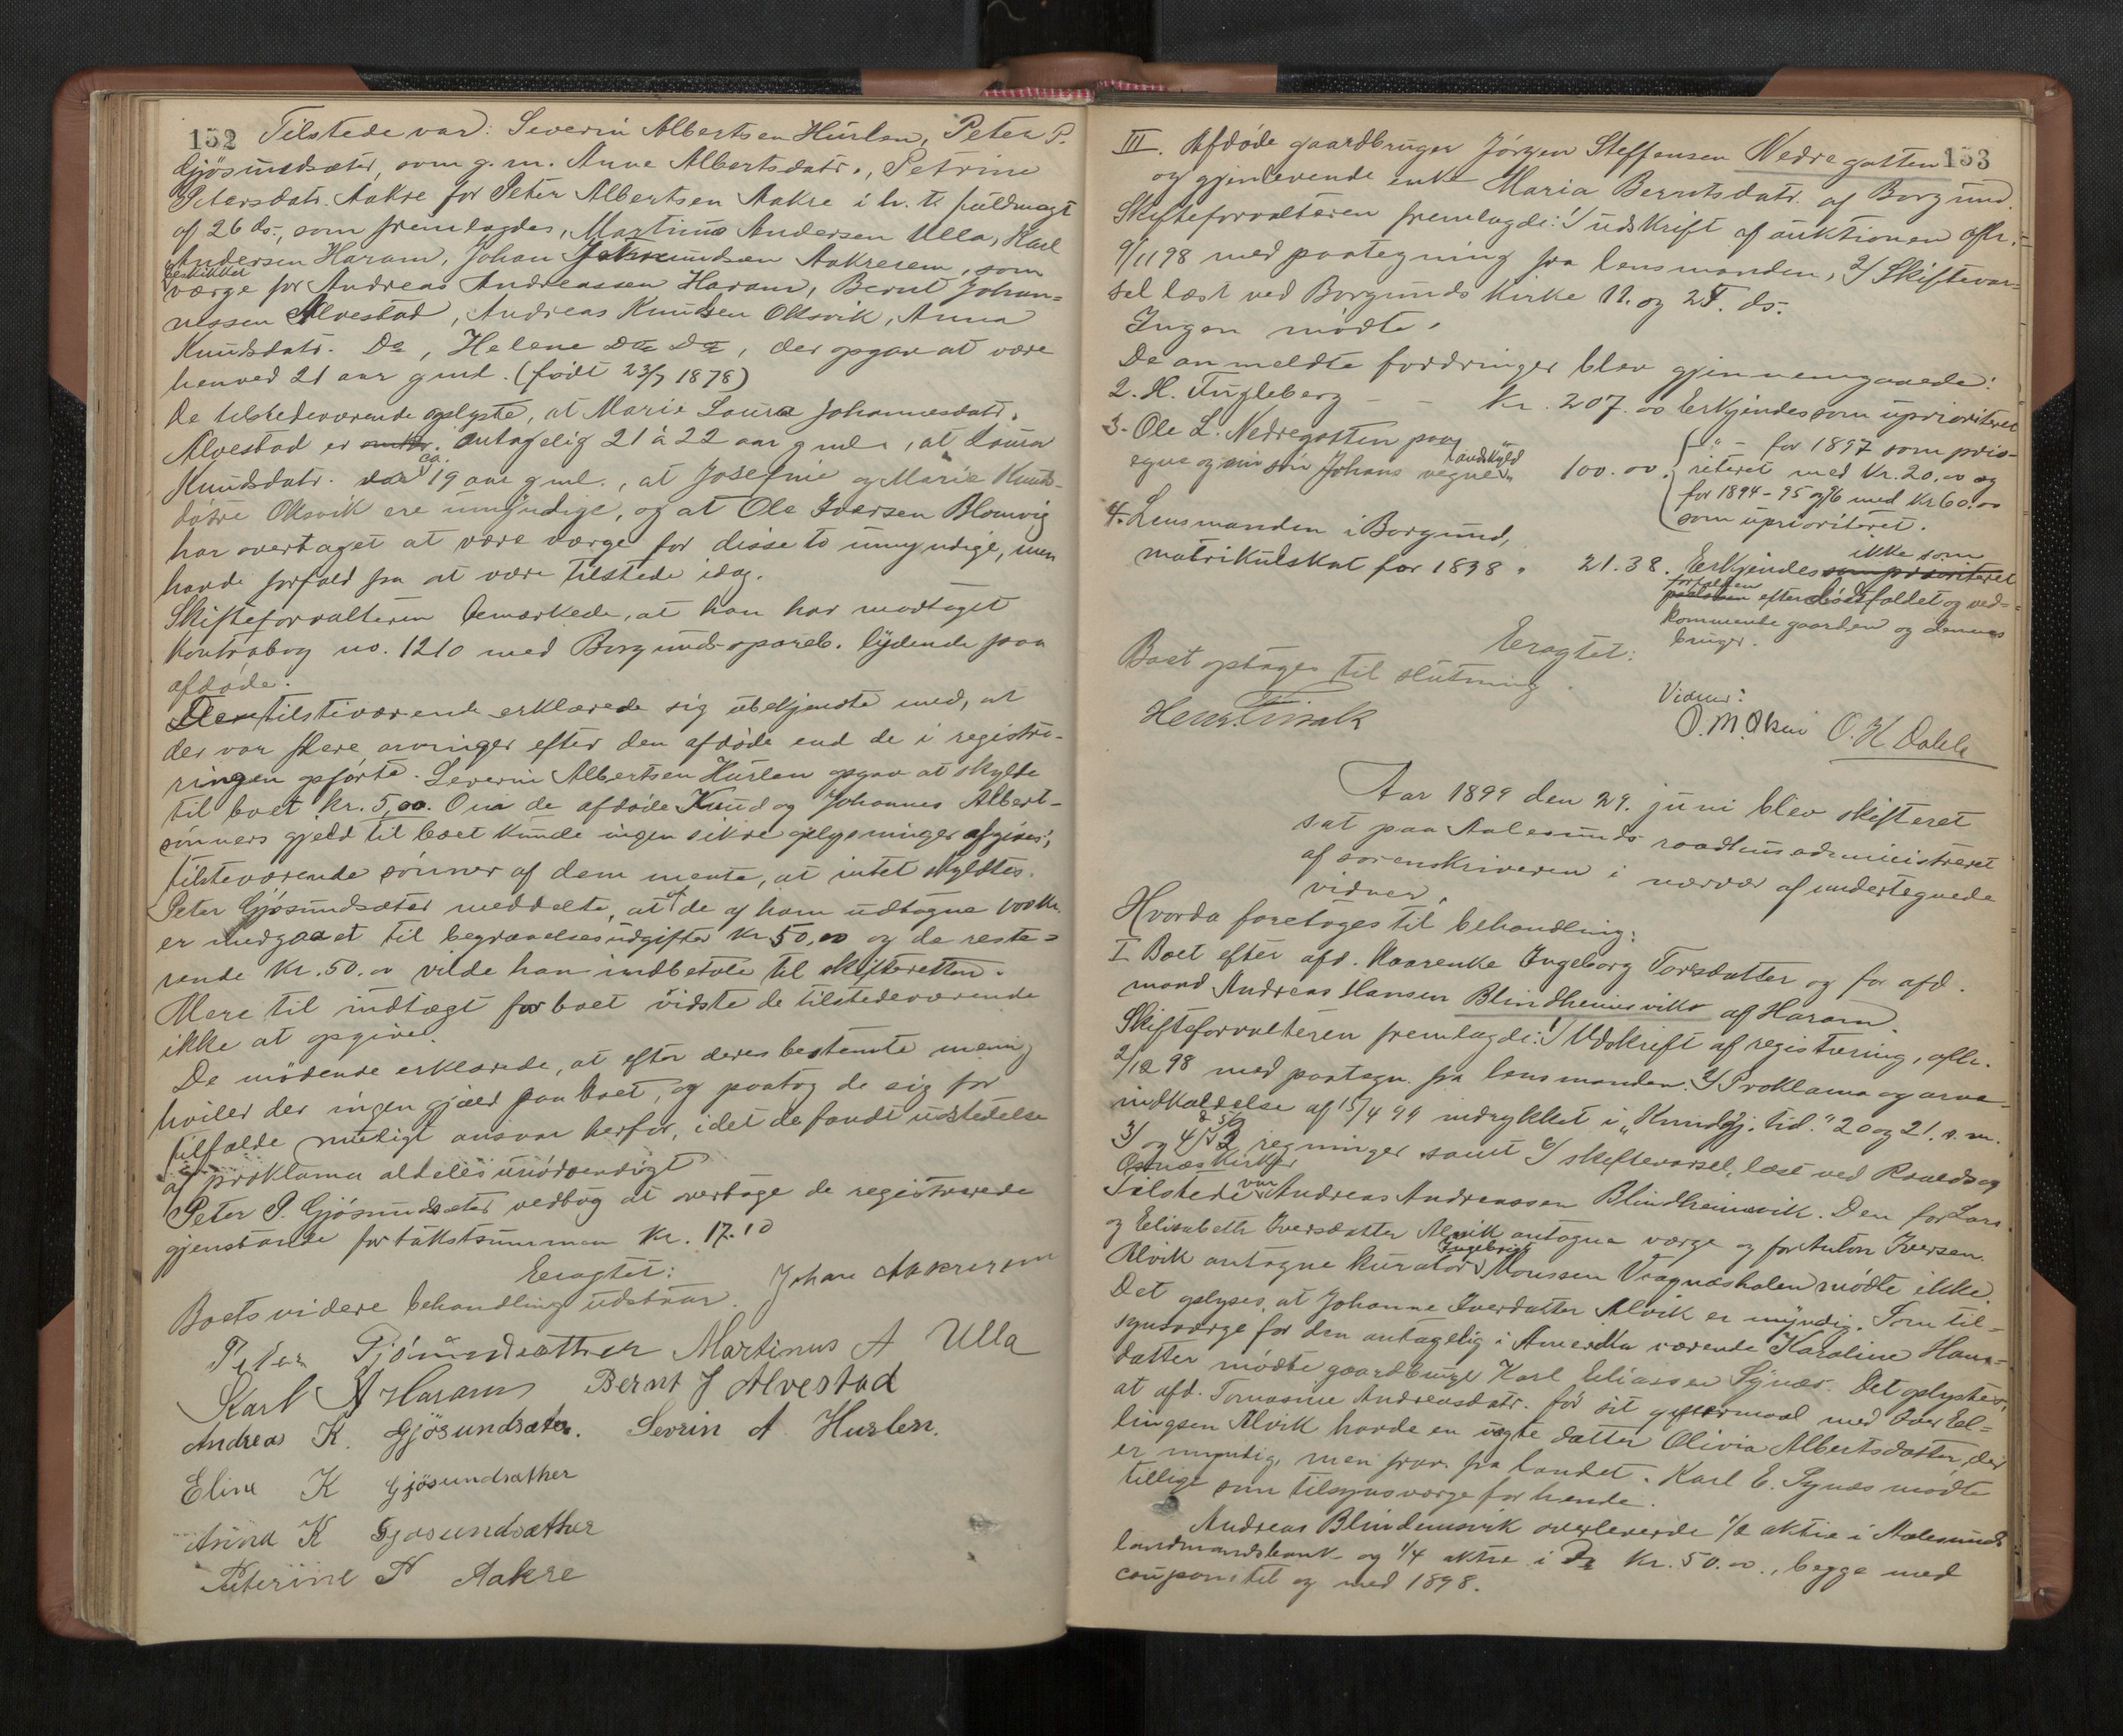 152
Tilstede var: Severin Albertsen Hurlen, Peter P.
Gjösundsæter, som g. m. Anne Albertsdatr., Petrine
Petersdatr. Aakre for Peter Albertsen Aakre i h. t. fuldmagt
af 26 ds., som fremlagdes, Martinus Andersen Ulla, Karl
Andersen Haram, Johan Aakrerem, som
beskikket
værge for Andreas Andreassen Haram, Bernt Johan-
nessen Alvestad, Andreas Knudsen Oksvik, Anna
Knudsdatr. Do, Helene Do Do, der opgav at være
henved 21 aar gml. (født 23/7 1878)
De tilstedeværende oplyste, at Marie Laura Johannesdatr.
Alvestad er antagelig 21 à 22 aar gml., at Laura
Knudsdatr. ca. 19 aar gml., at Josefine og Marie Knuds-
døtre Oksvik ere umyndige, og at Ole Iversen Blomvig
har overtaget at være værge for disse to umyndige, men
havde forfald fra at være tilstede idag.
Skifteforvalteren bemærkede, at han har modtaget
Kontrabog no. 1210 med Borgunds spareb. lydende paa
afdøde.
De tilstedeværende erklærede sig ubekjendte med, at
der var flere arvinger efter den afdøde end de i registre-
ringen opførte. Severin Albertsen Hurlen opgav at skylde
til boet kr. 5,00. Om de afdøde Knud og Johannes Albert-
sønners gjeld til boet kunde ingen sikre oplysninger afgives;
tilstedeværende sønner af dem mente, at intet skyldtes.
Peter Gjösundsæter meddelte, at af de af ham udtagne 100 kr.
er medgaaet til begravelsesudgifter kr 50,00 og de reste-
rende kr. 50.00 vilde han indbetale til skifteretten.
Mere til indtægt for boet vidste de tilstedeværende
ikke at opgive.
De mødende erklærede, at efter deres bestemte mening
hviler der ingen gjæld paa boet, og paatog de sig for
tilfælde muligt ansvar herfor, idet de fandt udstedelse
af proklama aldeles unødvendigt
Peter P. Gjösundsæter vedtog at overtage de registrerede
gjenstande for takstsummen kr. 17.10
Eragtet:
Boets videre behandling udstaar. Johan Aakrerem
Peter Gjösundsæther Martinus A Ulla
Karl A Haram Bernt J Alvestad
Andreas K. Gjösundsæter. Sevrin A. Hurlen.
Eline K Gjösundsæther
Anna K Gjøsundsæther
Peterine P Aakre
153
III. Afdøde gaardbruger Jörgen Steffensen Nedregotten
og gjenlevende enke Maria Berntsdatr. af Borgund.
Skifteforvalteren fremlagde: 1/ udskrift af auktionen afh.
9/11 98 med paategning fra lensmanden, 2/ Skiftevar-
sel læst ved Borgunds kirke 11. og 24. ds.
Ingen mødte.
De anmeldte fordringer blev gjennemgaaede:
2. H. Fugleberg - - Kr. 207.00 Erkjendes som uprioriteret
3. Ole L. Nedregotten paa
egne og sin søn Johans vegne, landskyld " 100.00. " - for 1897 som prio-
riteret med Kr. 20,00 og
for 1894-95 og 96 med Kr 60.00
som uprioriteret.
4. Lensmanden i Borgund,
matrikulskat for 1898 " 21.38. Erkjendes ikke som prioriteret
forfalden efter dödsfaldet og ved-
kommende gaarden og dennes
bruger.
Eragtet:
Boet optages til slutning.
Henr. Finsk
Vidner:
O. M. Olsen O. K Dahle
Aar 1899 den 29. juni blev skifteret
sat paa Aalesunds raadhus administreret
af sorenskriveren i nærvær af undertegnede
vidner.
Hvorda foretoges til behandling:
I Boet efter afd. Kaarenke Ingeborg Torsdatter og før afd.
mand Andreas Hansen Blindheimsvik af Haram.
Skifteforvalteren fremlagde: 1/ Udskrift af registrering, afh.
2/12 98 med paategn. fra lensmanden. 2/ Proklama og arve-
indkaldelse af 15/4 99 indrykket i "Kundgj. tid." 20 og 21. s. m.
3/ og 4/ 2 regninger samt 6/ skiftevarsel, læst ved Roalds og
Østnæs kirker
Tilstede var Andreas Andreassen Blindheimsvik. Den for Lars
og Elisabeth Iversdatter Alvik antagne værge og for Anton Iversen
Alvik antagne kurator Ingebrigt Monssen Vragnæshalen mødte ikke.
Det oplyses, at Johanne Iversdatter Alvik er myndig. Som til-
synsværge for den antagelig i Amerika værende Karoline Hans-
datter mødte gaardbruger Karl Eliassen Synæs. Det oplystes,
at afd. Tomasine Andreasdatr. før sit giftermaal med Iver El-
lingsen Alvik havde en uægte datter Olivia Albertsdatter, der
er myndig, men fra landet. Karl E. Synæs mødte
tillige som tilsynsværge for hende.
Andreas Blindemsvik overleverede 1/2 aktie i Aalesunds
landmandsbank og 1/4 aktie i Do Kr. 50.00., begge med
couponetil og med 1898.